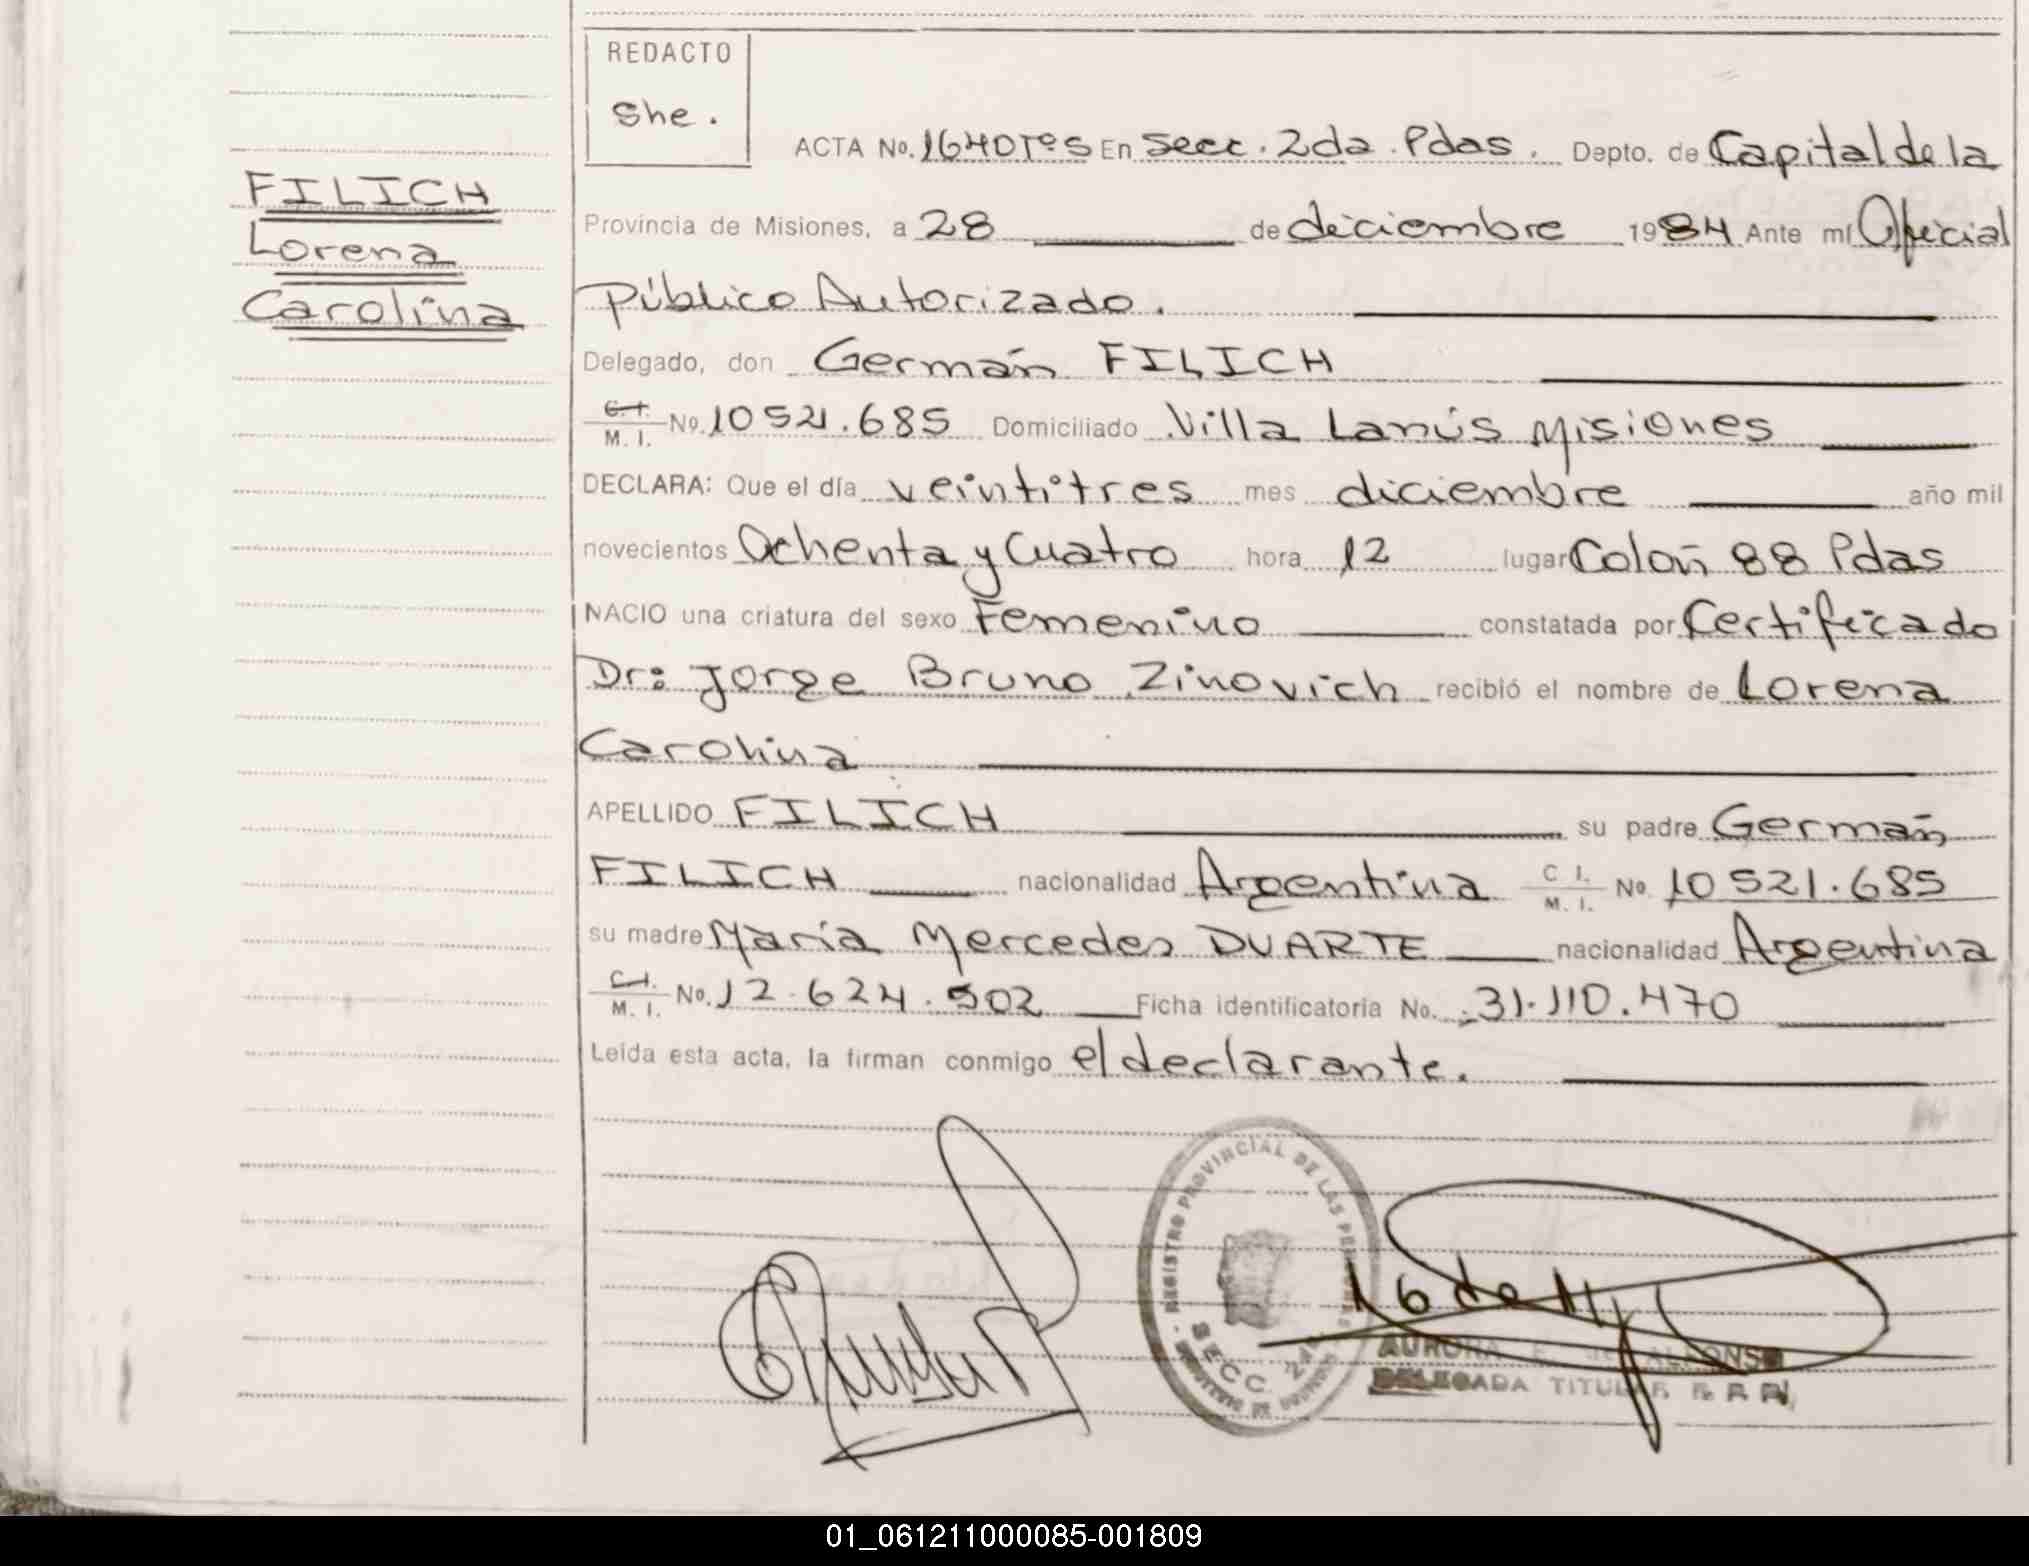 REDACTO
She.
ACTA No. 1640Tºs En Secc. 2da. Pdas. Depto. de Capital de la
FILICH
Lorena
Carolina
Provincia de Misiones, a 28 de diciembre 1984 Ante mí Oficial
Público Autorizado.
Delegado, don Germán FILICH
C.I. M.I. No. 10 521.685 Domiciliado Villa Lanús Misiones
DECLARA: Que el día veintitres mes diciembre año mil
novecientos Ochenta y Cuatro hora 12 lugar Colón 88 Pdas
NACIO una criatura del sexo Femenino constatada por Certificado
Dr: Jorge Bruno Zinovich recibió el nombre de Lorena
Carolina
APELLIDO FILICH su padre Germán
FILICH nacionalidad Argentina C.I. M.I. No. 10 521.685
su madre María Mercedes DUARTE nacionalidad Argentina
C.I. M.I. No. 12.624.502 Ficha identificatoria No. 31.110.470
Leída esta acta, la firman conmigo el declarante.
REGISTRO PROVINCIAL DE LAS PERSONAS
SECC. 2da
AURORA E. de ALFONSO
DELEGADA TITULAR
01_061211000085-001809